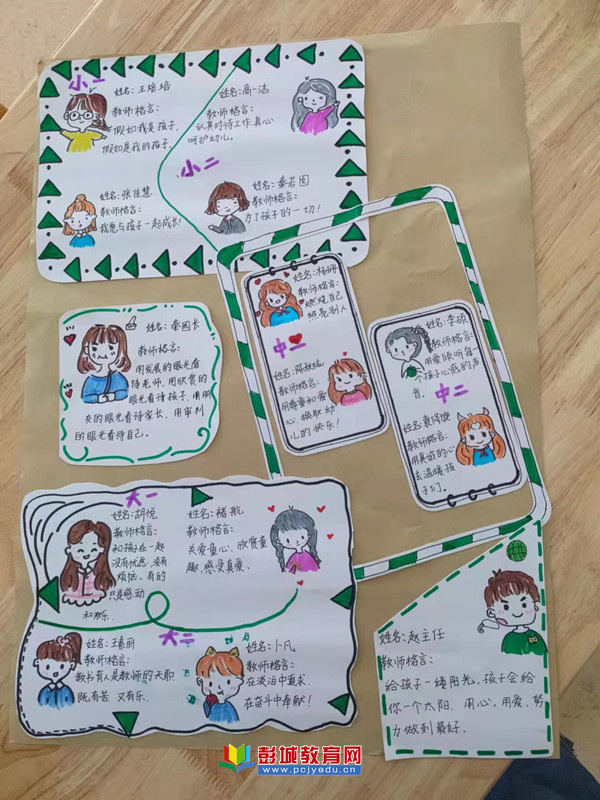 小一
姓名:王培培
教师格言:
假如我是孩子,
假如是我的孩子.
姓名:高一洁
教师格言:
认真对待工作,真心
呵护幼儿。
姓名:张佳慧
教师格言:
我愿与孩子一起成长!
小二
姓名:秦若图
教师格言:
为了孩子的一切!
姓名:秦园长
教师格言:
用发展的眼光看
待老师,用欣赏的
眼光看待孩子,用朋
友的眼光看待家长,用审判
的眼光看待自己。
姓名:杨珊
教师格言:
燃烧自己
照亮别人
中一
教师格言:
用尊重和爱
心,换取幼
儿的快乐!
姓名:李硕
教师格言:
用爱倾听每
个孩子心底的声
音.
中二
教师格言:
用真诚的心
去温暖孩
子们。
大一
姓名:胡悦
教师格言:
和孩子在一起
没有忧愁,没有
烦恼、有的
只是感动
和欢乐.
姓名:褚航
教师格言:
关爱童心、欣赏童
趣、感受真爱、
大二
姓名:王春丽
教师格言:
教书育人是教师的天职
既有苦、又有乐.
姓名:卜凡
教师格言:
在淡泊中追求
在奋斗中奉献!
姓名:赵主任
教师格言:
给孩子一缕阳光,孩子会给
你一个太阳.用心,用爱,努
力做到最好.
彭城教育网
www.pcjyedu.cn